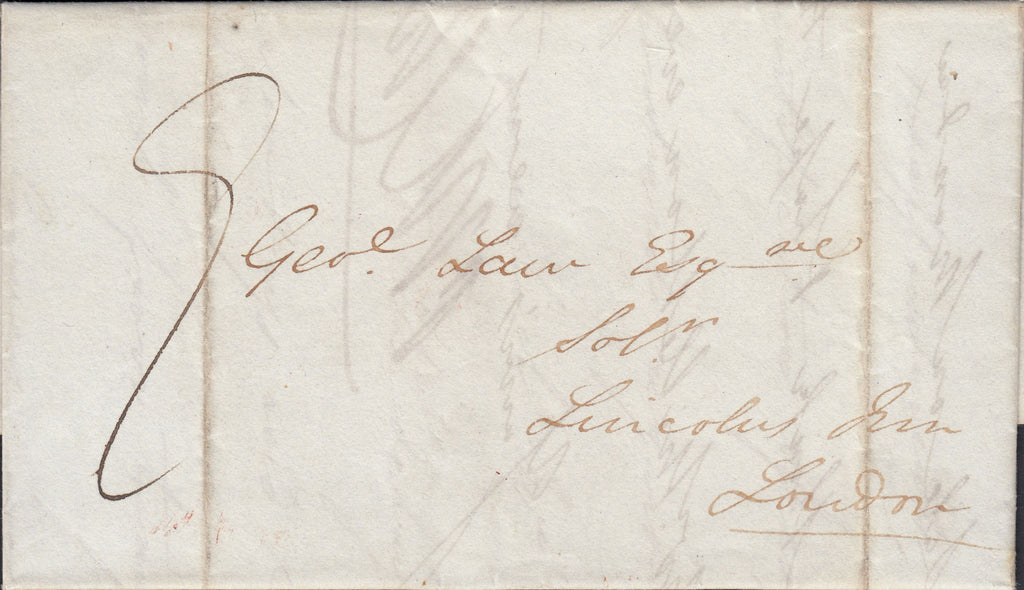 8
Geoe. Law Esqre
Solr.
Lincolns Inn
London